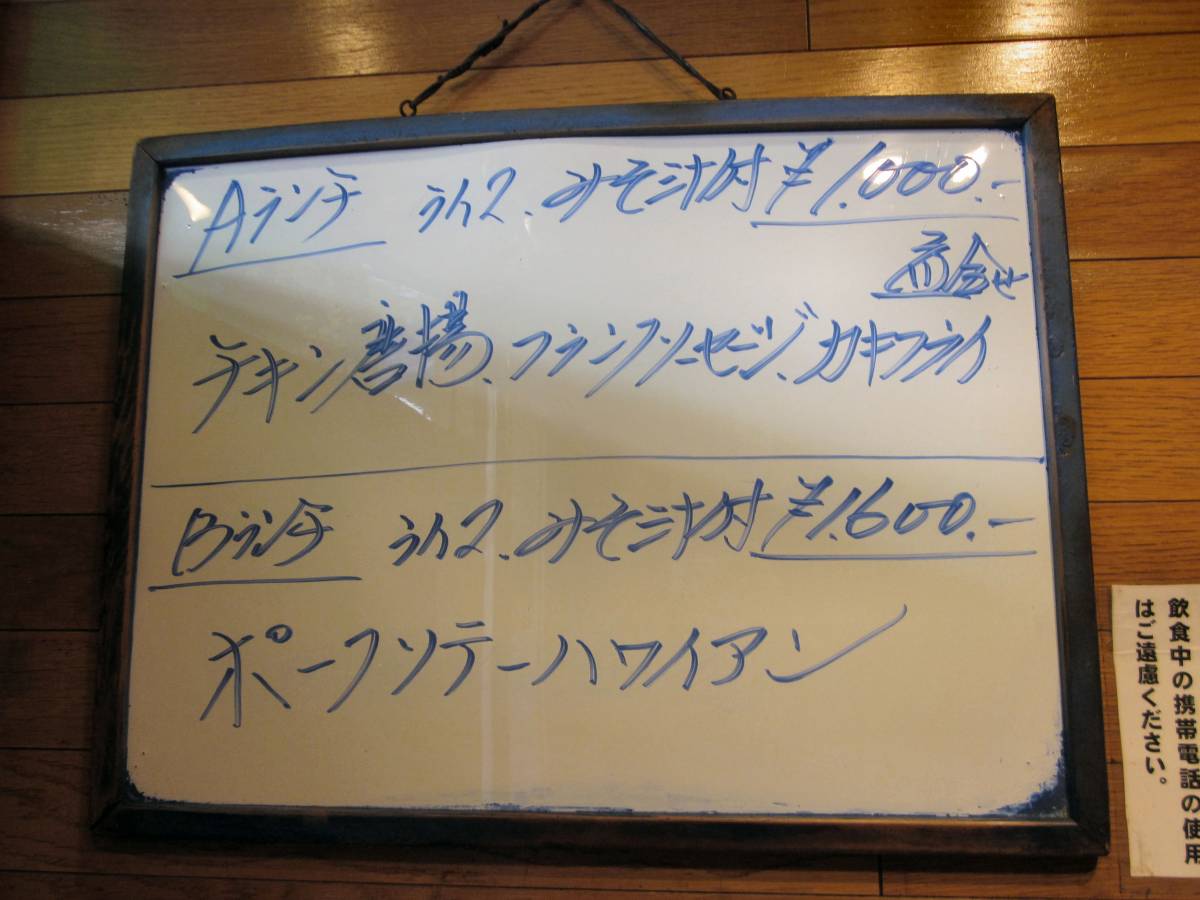 Aランチ ライス、みそ汁付 ¥1.000.-
盛合せ
チキン唐揚、フランクソーセージ、カキフライ
Bランチ ライス、みそ汁付 ¥1.600.-
ポークソテーハワイアン
飲食中の携帯電話の使用
はご遠慮ください。